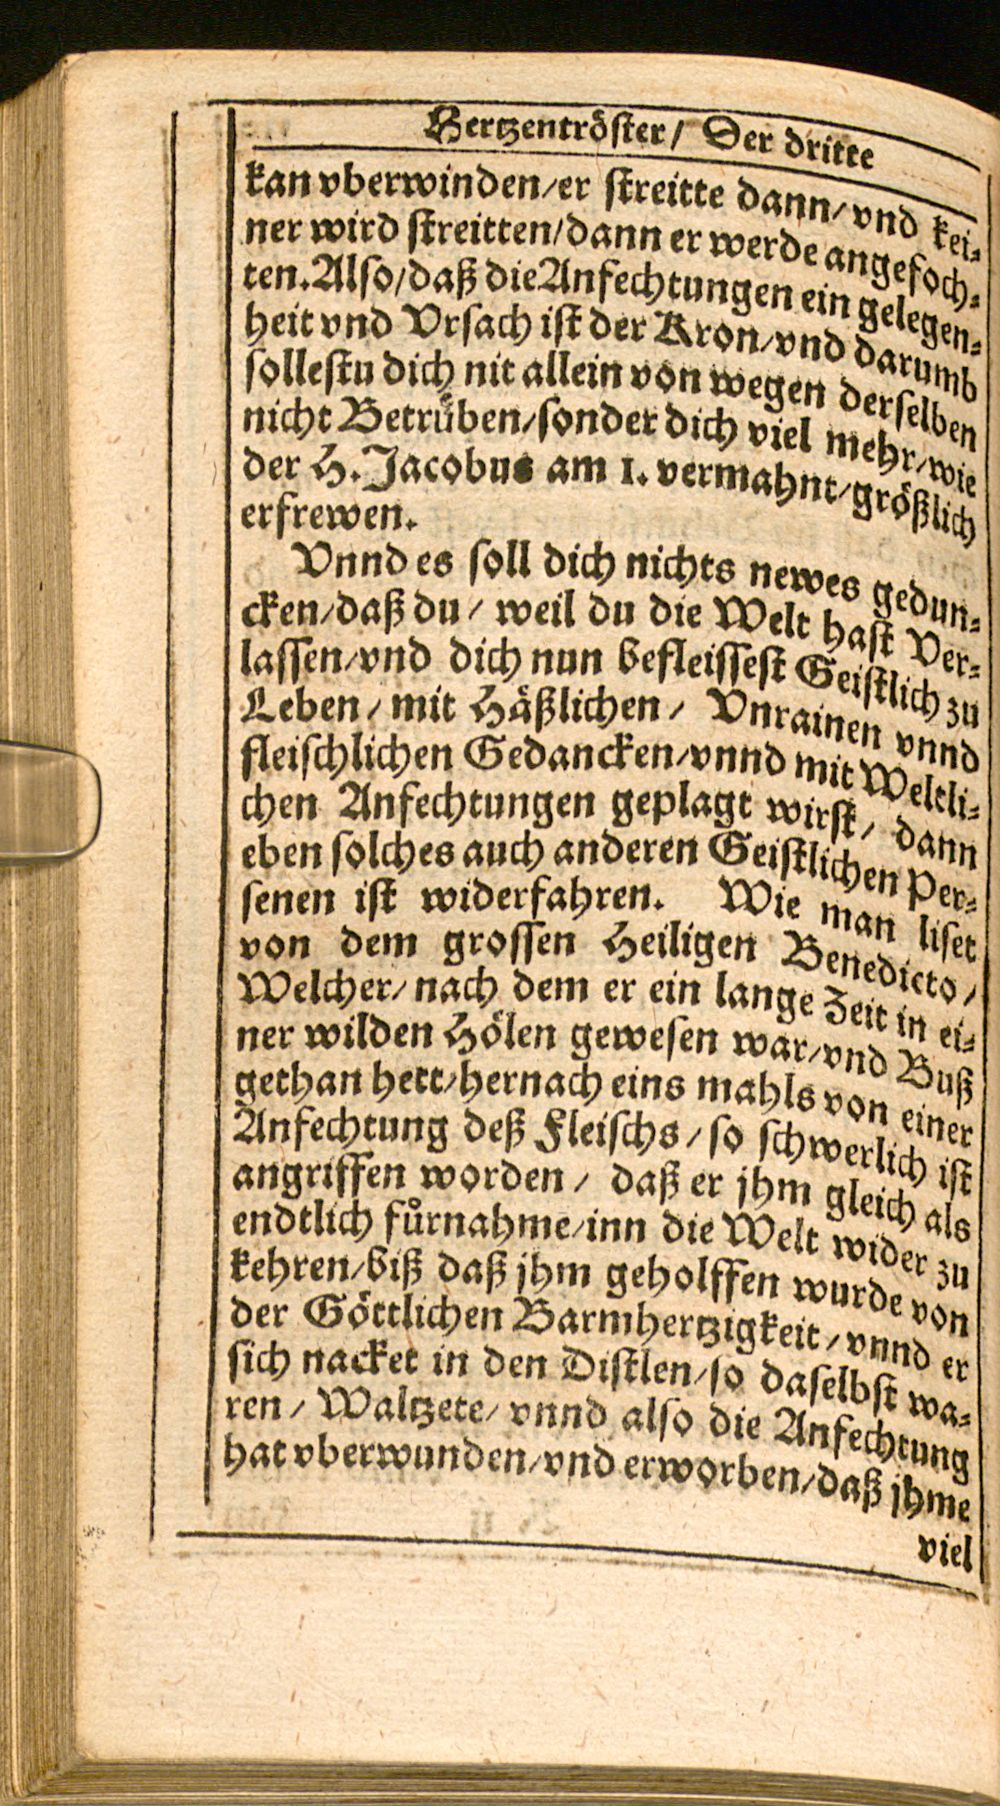 Hertzentröster/ Der dritte
kan vberwinden/er streitte dann/vnd kei-
ner wird streitten/dann er werde angefoch-
ten. Also/daß die Anfechtungen ein gelegen-
heit vnd Vrsach ist der Kron/vnd darumb
sollestu dich nit allein von wegen derselben
nicht Betrüben/sonder dich viel mehr/wie
der H. Jacobus am 1. vermahnt/größlich
erfrewen.
Vnnd es soll dich nichts newes gedun-
cken/daß du/ weil du die Welt hast Ver-
lassen/vnd dich nun befleissest Geistlich zu
Leben/ mit Häßlichen/ Vnrainen vnnd
fleischlichen Gedancken/vnnd mit Weltli-
chen Anfechtungen geplagt wirst/ dann
eben solches auch anderen Geistlichen Per-
senen ist widerfahren. Wie man liset
von dem grossen Heiligen Benedicto/
Welcher/ nach dem er ein lange Zeit in ei-
ner wilden Hölen gewesen war/vnd Buß
gethan hett/hernach eins mahls von einer
Anfechtung deß Fleischs/ so schwerlich ist
angriffen worden/ daß er jhm gleich als
endtlich fůrnahme/inn die Welt wider zu
kehren/biß daß jhm geholffen wurde von
der Göttlichen Barmhertzigkeit/vnnd er
sich nacket in den Distlen/so daselbst wa-
ren/ Waltzete/ vnnd also die Anfechtung
hat vberwunden/vnd erworben/daß jhme
viel